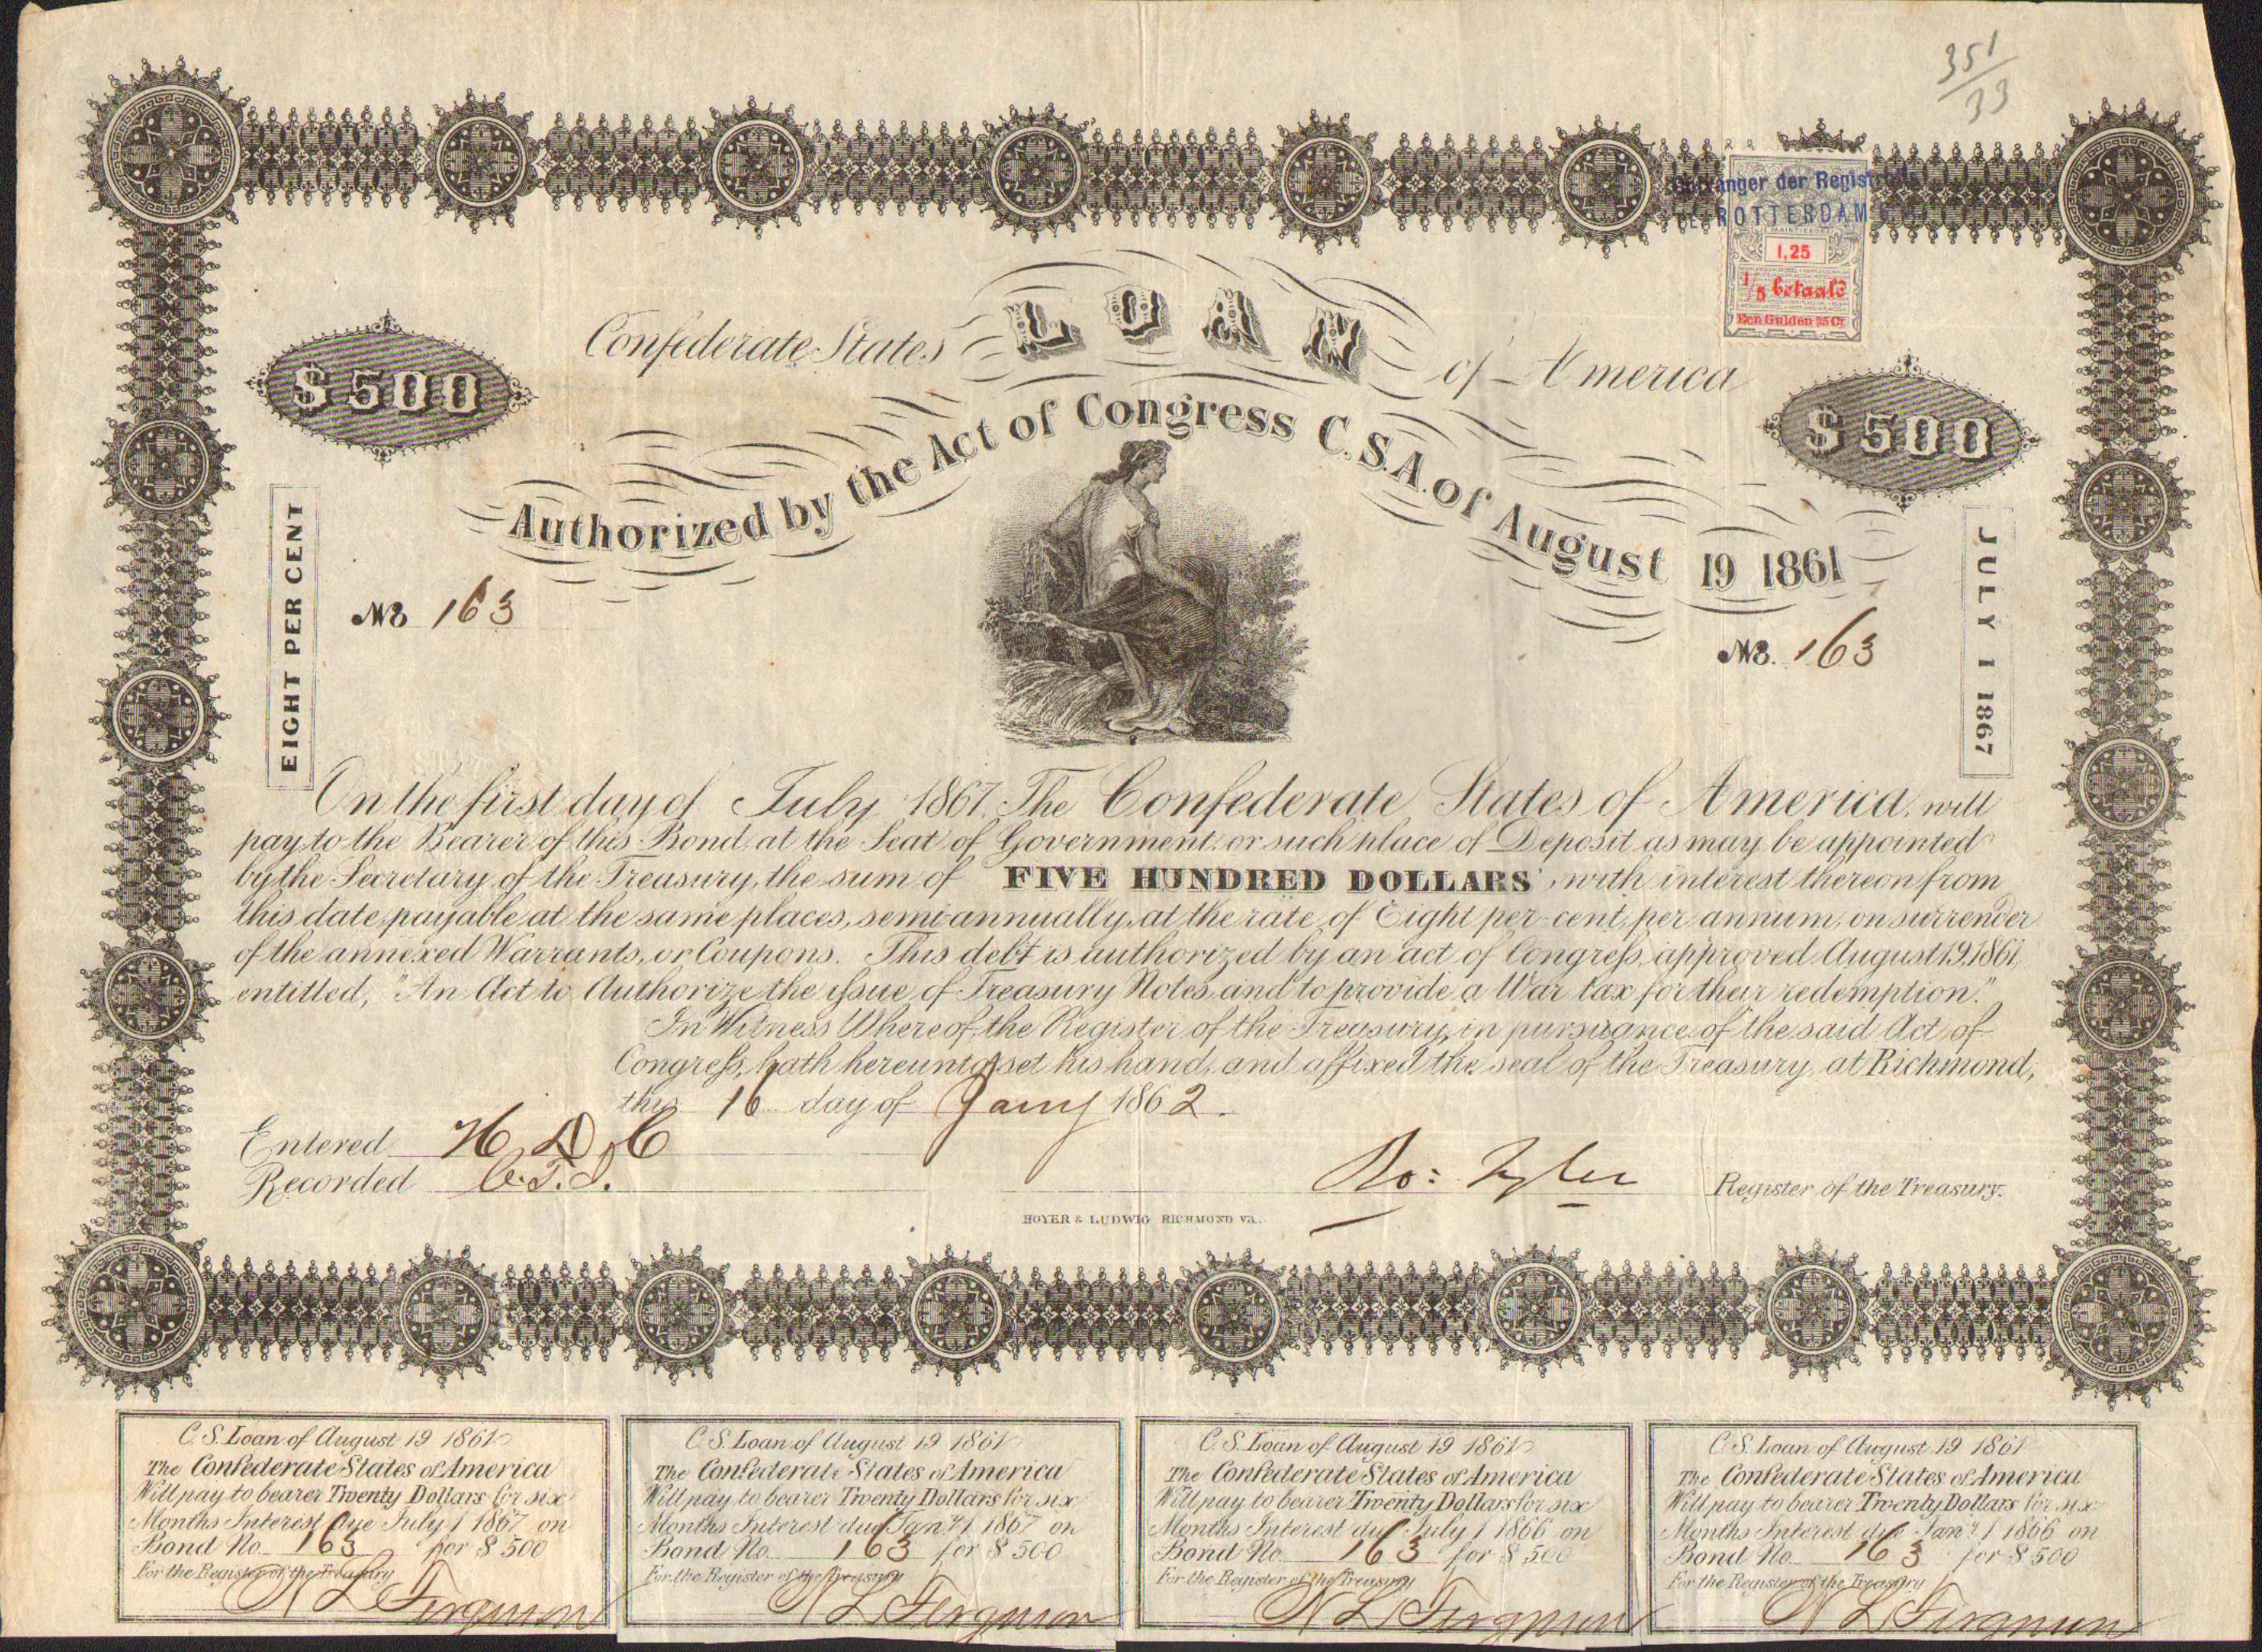 351
33
Ontvanger der Regist
ROTTERDAM
1,25
1/5 betaald
Een Gulden 25 Ct
Confederate States LOAN of America
$500
$500
Authorized by the Act of Congress C.S.A. of August 19 1861
EIGHT PER CENT
JULY 1 1867
No 163
No. 163
On the first day of July 1867. The Confederate States of America, will
pay to the Bearer of this Bond, at the Seat of Government, or such place of Deposit as may be appointed
by the Secretary of the Treasury, the sum of FIVE HUNDRED DOLLARS, with interest thereon from
this date, payable at the same places, semi-annually, at the rate of Eight per-cent, per annum, on surrender
of the annexed Warrants, or Coupons. This debt is authorized by an act of Congress, approved August 19, 1861,
entitled, "An Act to Authorize the issue of Treasury Notes, and to provide a War tax for their redemption."
In Witness Whereof, the Register of the Treasury, in pursuance of the said Act of
Congress, hath hereunto set his hand, and affixed the seal of the Treasury, at Richmond,
this 16 day of Jany 1862.
Entered H D C
Recorded C.T.J.
Ro: Tyler Register of the Treasury.
HOYER & LUDWIG RICHMOND VA.
C.S. Loan of August 19 1861
The Confederate States of America
Will pay to bearer Twenty Dollars for six
Months Interest due July 1 1867 on
Bond No. 163 for $500
For the Register of the Treasury
N L Ferguson
C.S. Loan of August 19 1861
The Confederate States of America
Will pay to bearer Twenty Dollars for six
Months Interest due Jany 1 1867 on
Bond No. 163 for $500
For the Register of the Treasury
N L Ferguson
C.S. Loan of August 19 1861
The Confederate States of America
Will pay to bearer Twenty Dollars for six
Months Interest due July 1 1866 on
Bond No. 163 for $500
For the Register of the Treasury
N L Ferguson
C.S. Loan of August 19 1861
The Confederate States of America
Will pay to bearer Twenty Dollars for six
Months Interest due Jany 1 1866 on
Bond No. 163 for $500
For the Register of the Treasury
N L Ferguson